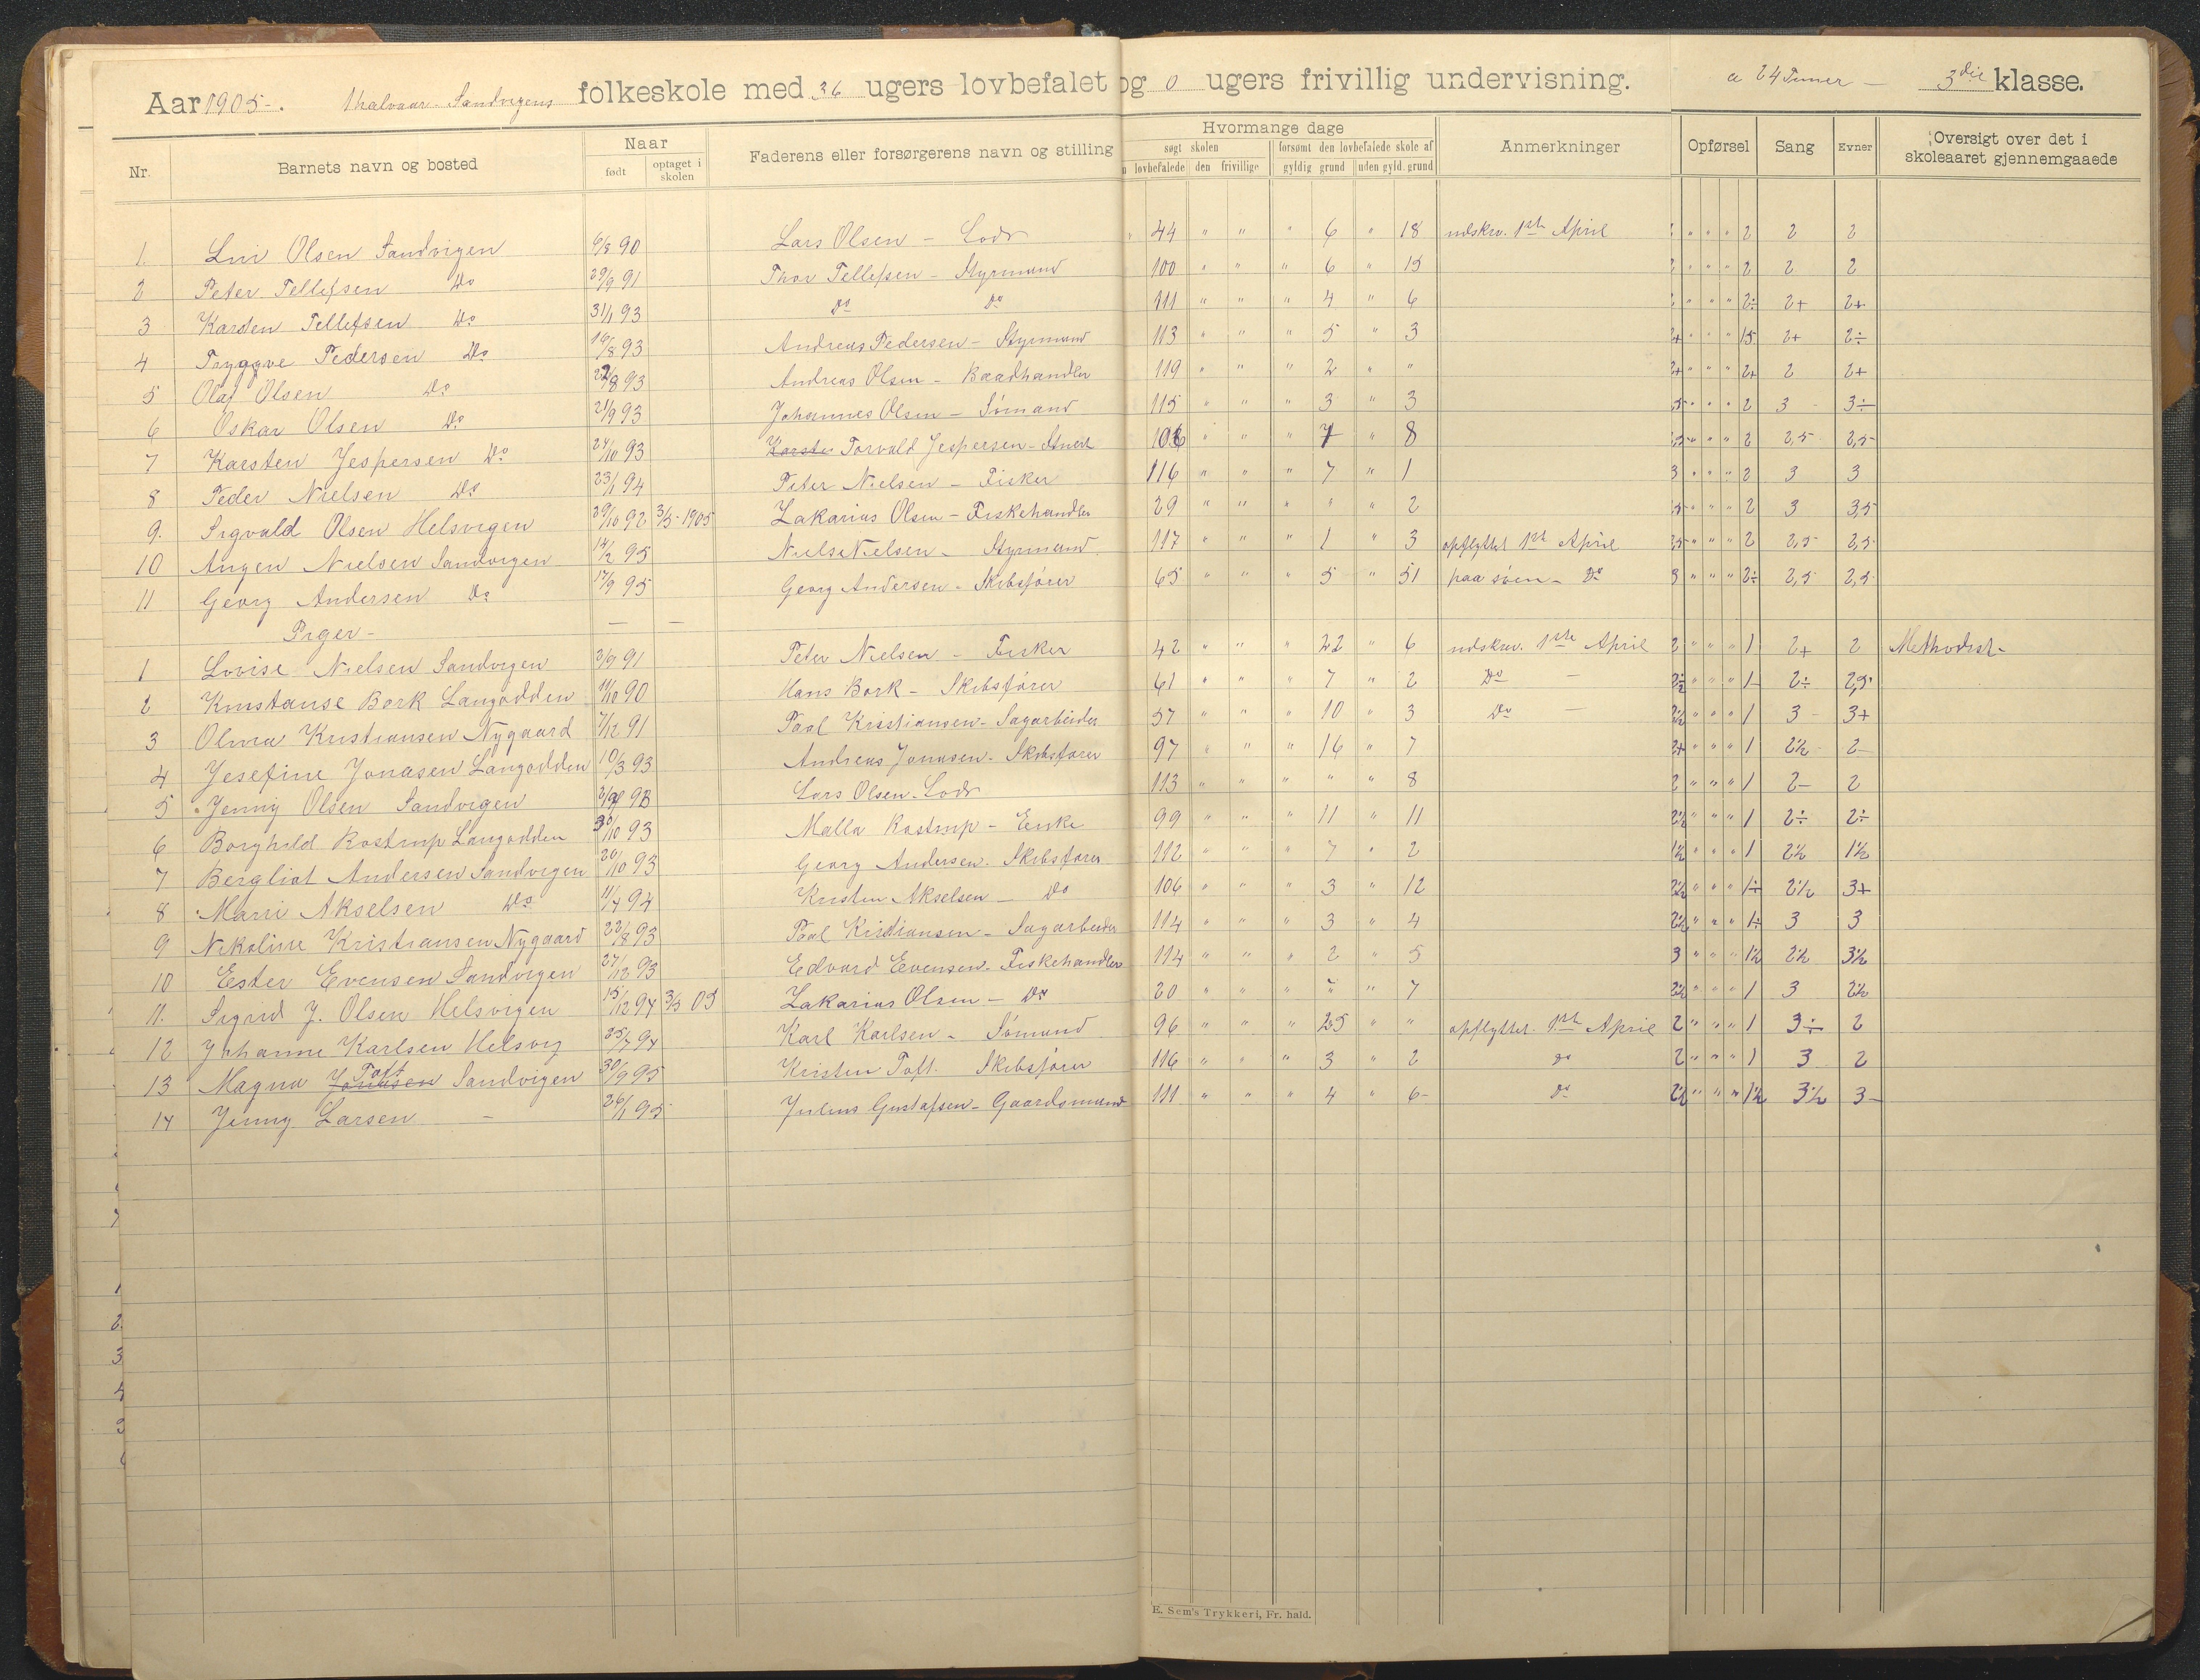 Aar 1905-. 1halvaar. Sandvigens folkeskole med 36 ugers lovbefalet og 0 ugers frivillig undervisning. a 24 Timer - 3die klasse.
Nr. Barnets navn og bosted Naar født optaget i skolen Faderens eller forsørgerens navn og stilling Hvormange dage søgt skolen lovbefalede den frivillige forsømt den lovbefalede skole af gyldig grund uden gyld. grund Anmerkninger Opførsel Sang Evner Oversigt over det i skoleaaret gjennemgaaede
1. Olsen Sandvigen 6/8 90 Lars Olsen - Lods 44 " " " 6 " 18 udskrv. 1ste April " " " 2 2 2
2 Peter Tellefsen Do 29/9 91 Thor Tellefsen - Styrmand 100 " " " 6 " 15 " " " 2 2 2
3 Karsten Tellefsen Do 31/1 93 Do Do 111 " " " 4 " 6 " " " 2÷ 2+ 2+
4 Tryggve Pedersen Do 19/8 93 Andreas Pedersen - Styrmand 113 " " " 5 " 3 2+ " " " 1,5 2+ 2÷
5 Olaf Olsen Do 22/8 93 Andreas Olsen - Baadhandler 119 " " " 2 " " 2+ " " " 2+ 2 2+
6 Oskar Olsen Do 21/9 93 Johannes Olsen - Sømand 115 " " " 3 " 3 " " " 2 3 - 3÷
7 Karsten Jespersen Do 24/10 93 Karste Torvald Jespersen - Stuert 106 " " " 7 " 8 " " " 2 2,5 2,5
8 Peder Nielsen Do 23/1 94 Peter Nielsen - Fisker 116 " " " 7 " 1 3 " " " 2 3 3
9. Sigvald Olsen Helsvigen 29/10 92 3/5-1905 Zakarias Olsen - Fiskehandler 29 " " " " " 2 " " " 2 3 3,5
10 Angen Nielsen Sandvigen 14/2 95 Niels Nielsen - Styrmand 117 " " " 1 " 3 opflyttet 1ste April " " " 2 2,5 2,5
11 Georg Andersen Do 17/9 95 Georg Andersen - Skibsfører 65 " " " 5 " 51 paa søen - Do 3 " " " 2÷ 2,5 2,5
Piger - - -
1 Lovise Nielsen Sandvigen 3/9 91 Peter Nielsen - Fisker 42 " " " 22 " 6 udskrv. 1ste April 2 " " " 1 2+ 2 Methodist -
2 Konstanse Bork Langodden 11/10 90 Hans Bork - Skibsfører 61 " " " 7 " 2 Do - " " " 1- 2÷ 2,5
3 Olivia Kristiansen Nygaard 7/12 91 Paal Kristiansen - Sagarbeider 57 " " " 10 " 3 Do - 2½ " " " 1 3 - 3+
4 Jesefine Jonasen Langodden 10/3 93 Andreas Jonasen - Skibsfører 97 " " " 16 " 7 2+ " " " 1 2½ - 2-
5 Jenny Olsen Sandvigen 93 Lars Olsen - Lods 113 " " " " " 8 2 " " " 1 2- 2
6 Borghild Rostrup Langodden 30/10 93 Malla Rostrup - Enke 99 " " " 11 " 11 2½ " " " 1 2÷ 2÷
7 Bergliot Andersen Sandvigen 20/10 93 Georg Andersen - Skibsfører 112 " " " 7 " 2 1½ " " " 1 2½ 1½
8 Marie Akselsen Do 11/4 94 Kristen Akselsen - Do 106 " " " 3 " 12 2½ " " " 1÷ 2½ 3+
9 Nikoline Kristiansen Nygaard 22/8 93 Paal Kristiansen - Sagarbeider 114 " " " 3 " 4 2½ " " " 1÷ 3 3
10 Ester Evensen Sandvigen 27/12 93 Edvard Evensen - Fiskehandler 114 " " " 2 " 5 3 " " " 1½ 2½ 3½
11. Sigrid J. Olsen Helsvigen 15/12 94 3/5 05 Zakarias Olsen - Do 20 " " " " " 7 2½ " " " 1 3 2½
12 Johanne Karlsen Helsvig 25/7 94 Karl Karlsen - Sømand 96 " " " 25 " " opflyttet 1ste April 2 " " " 1 3÷ 2
13 Magna Toft Sandvigen 30/9 95 Kristen Toft. Skibsfører 116 " " " 3 " 2 Do 2 " " " 1 3 2
14 Jenny Larsen - 26/1 95 Julius Gustafsen - Gaardsmand 111 " " " 4 " 6- Do 2½ " " " 1½ 3½ 3-
E. Sem's Trykkeri, Fr. hald.